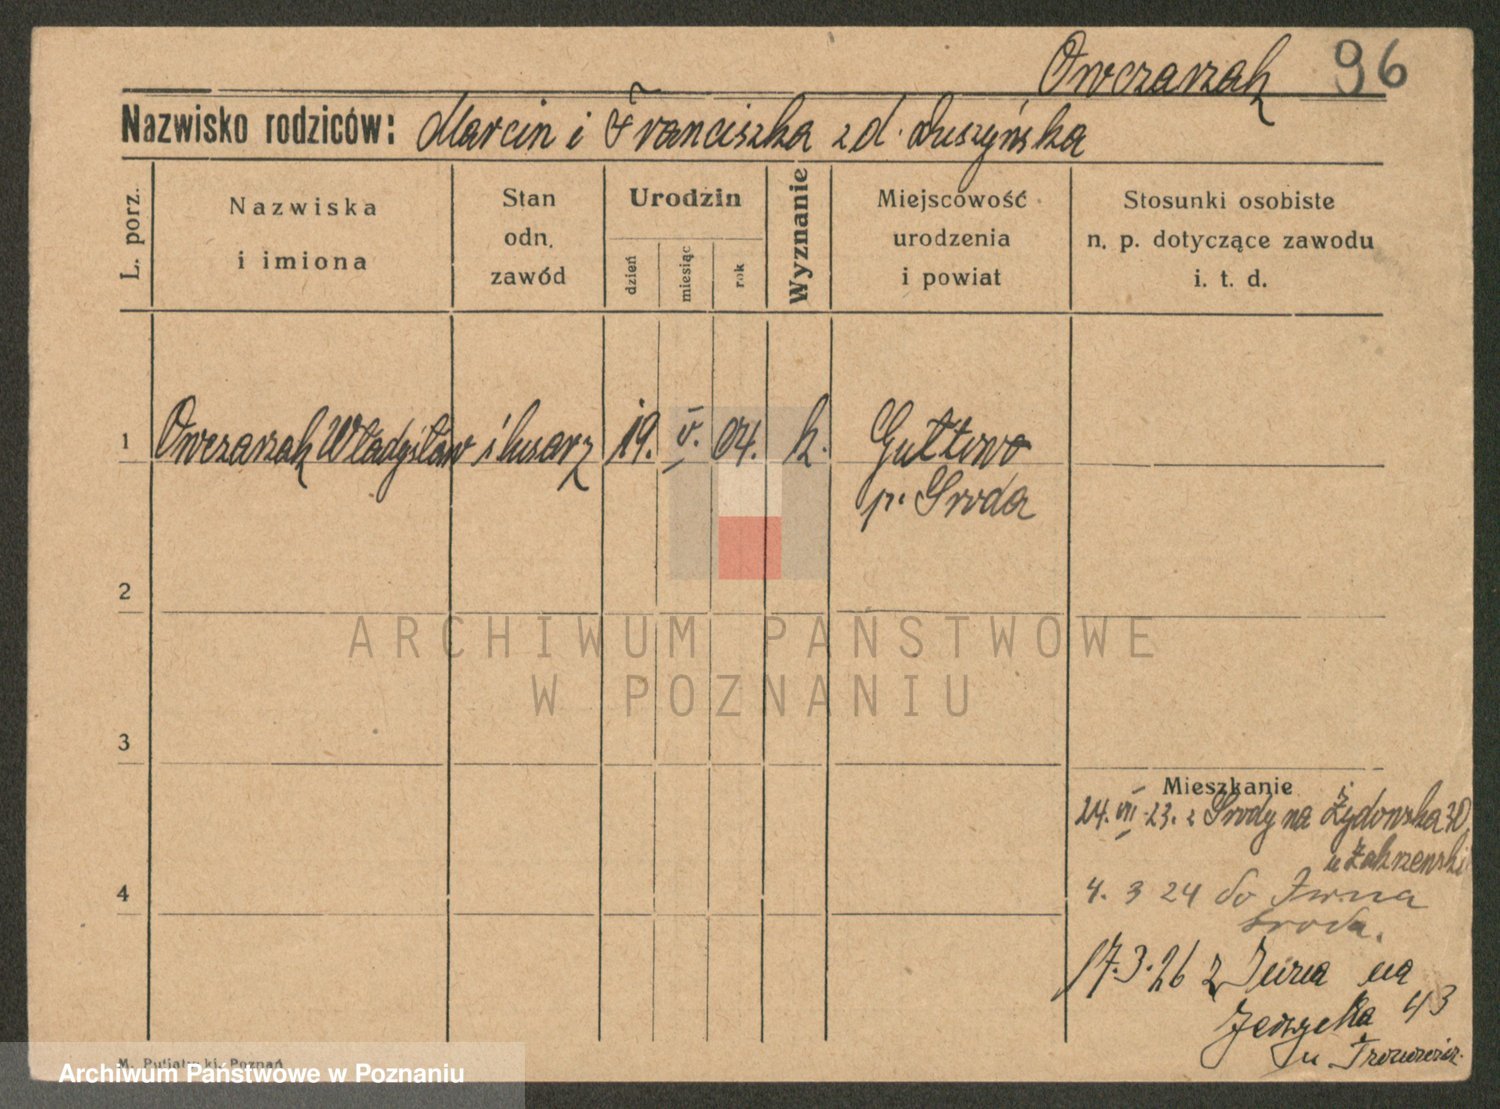 Owczarzak 96
Nazwisko rodziców: Marcin i Franciszka z d. Duszyńska
L. porz.
Nazwiska
i imiona
Stan
odn.
zawód
Urodzin
dzień
miesiąc
rok
Wyznanie
Miejscowość
urodzenia
i powiat
Stosunki osobiste
n. p. dotyczące zawodu
i. t. d.
1 Owczarzak Władysław ślusarz 19. V. 04. k. Guttowo
p. Środa
2
ARCHIWUM PAŃSTWOWE
W POZNANIU
3
Mieszkanie
24. VII. 23. z Środy na Żydowska 30
u Zakrzewski
4
4. 3 24 do
Środa.
17.3.26 z na
43
u
M. Putiatycki, Poznań
Archiwum Państwowe w Poznaniu